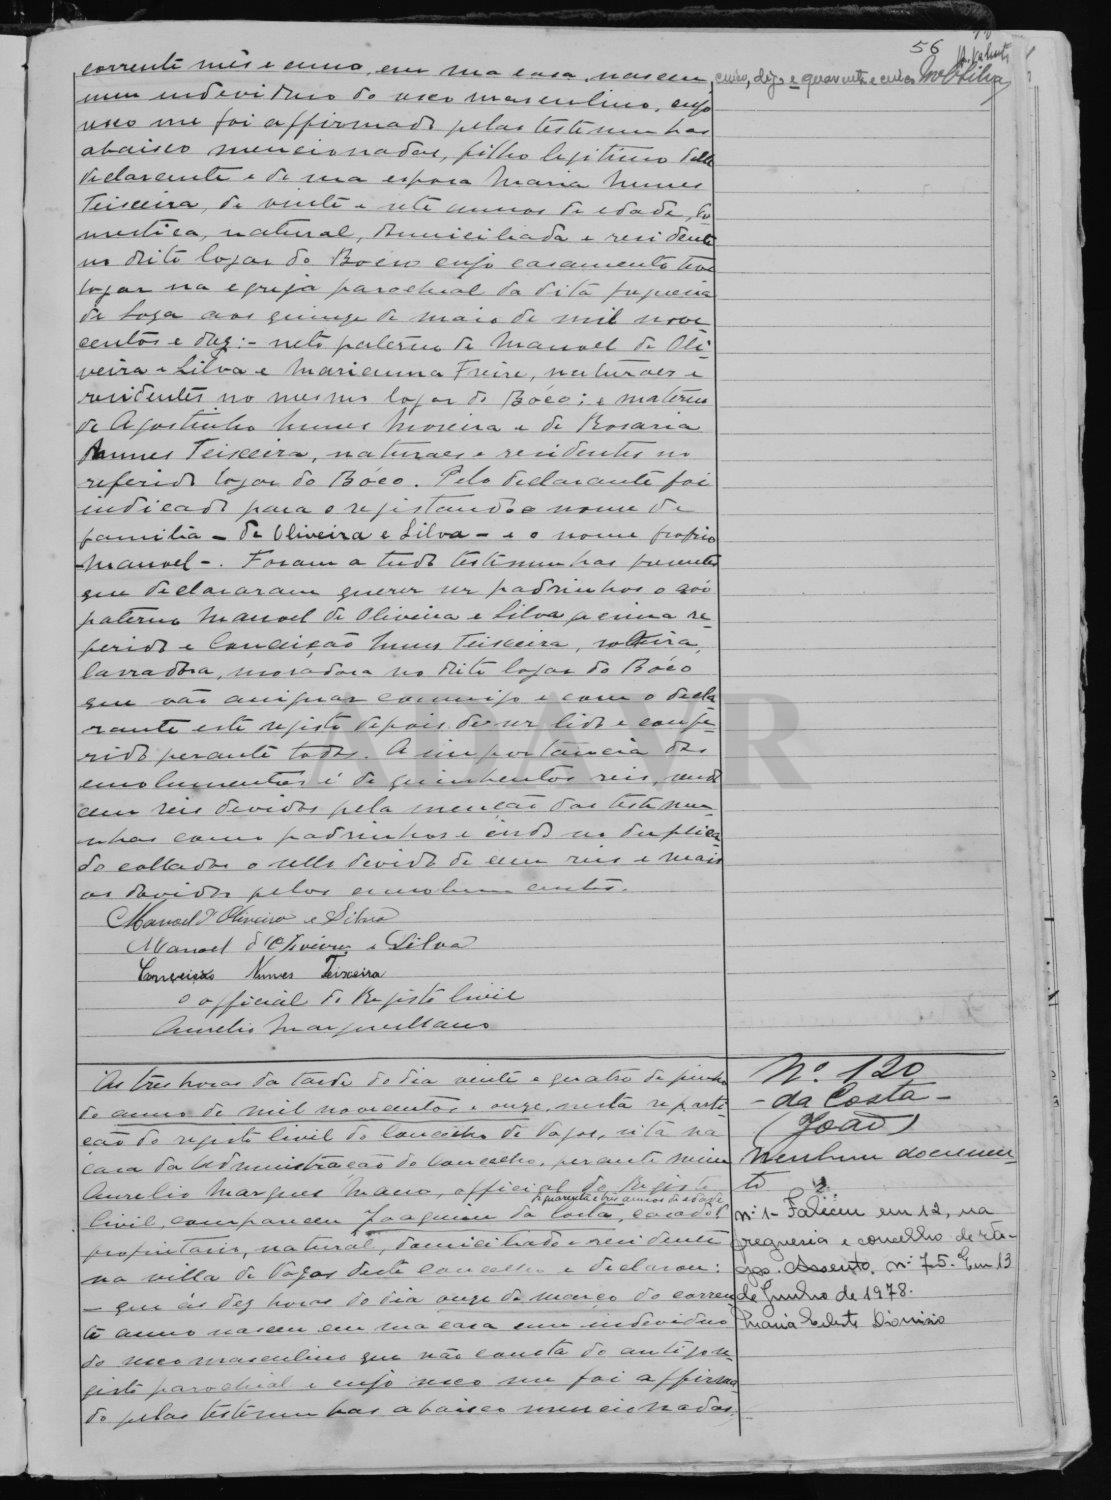 56
corrente mês e anno, em sua casa, nasceu
um individuo do sexo masculino, cujo
sexo me foi affirmado pelas testemunhas
abaixo mencionadas, filho legitimo delle
declarante e de sua esposa Maria Nunes
Teixeira, de vinte e sete annos de edade, do-
mestica, natural, domiciliada e residente
no dito logar do Boco cujo casamento teve
logar na egreja parochial da dita freguesia
de Soza aos quinze de maio de mil nove
centos e dez:- neto paterno de Manoel de Oli-
veira e Silva e Marianna Freire, naturaes e
residentes no mesmo logar do Bóco; e materno
de Agostinho Nunes Moreira e de Rosaria
Nunes Teixeira, naturaes e residentes no
referido logar do Bóco. Pelo declarante foi
indicado para o registando o nome de
familia - de Oliveira e Silva - e o nome proprio
- Manoel -. Foram a tudo testemunhas presentes
que declararam querer ser padrinhos o avô
paterno Manoel de Oliveira e Silva acima re-
ferido e Conceição Nunes Teixeira, solteira,
lavradora, moradora no dito logar do Bóco
que vão assignar commigo e com o decla-
rante este registo depois de ser lido e confe-
rido perante todos. A importancia dos
emolumentos é de quinhentos reis, sendo
cem reis devidos pela menção das testemu-
nhas como padrinhos e indo no duplica-
do collados o sello devido de cem reis e mais
os devidos pelos emolumentos.
Manoel d'Oliveira e Silva
Manoel d'Oliveira e Silva
Conceição Nunes Teixeira
O official do Registo Civil
Aurelio Marques Mano
As tres horas da tarde do dia vinte e quatro de junho
do anno de mil novecentos e onze, nesta reparti-
ção do registo civil do Concelho de Vagos, sita na
casa da Administração do Concelho, perante mim
Aurelio Marques Mano, official do Registo
de quarenta e tres annos de edade
civil, compareceu Joaquim da Costa, casado,
proprietario, natural, domiciliado e residente
na villa de Vagos deste Concelho e declarou:
- que ás dez horas do dia onze de março do corren-
te anno nasceu em sua casa um individuo
do sexo masculino que não consta do antigo re-
gisto parochial e cujo sexo me foi affirma-
do pelas testemunhas abaixo mencionadas,
Nº 120
- da Costa -
(João)
Nenhum documen-
to
nº 1- Faleceu em 12, na
freguesia e concelho de Va-
gos. Assento nº 75. Em 13
de Junho de 1978.
Maria Celeste Dionisio
ADAVR